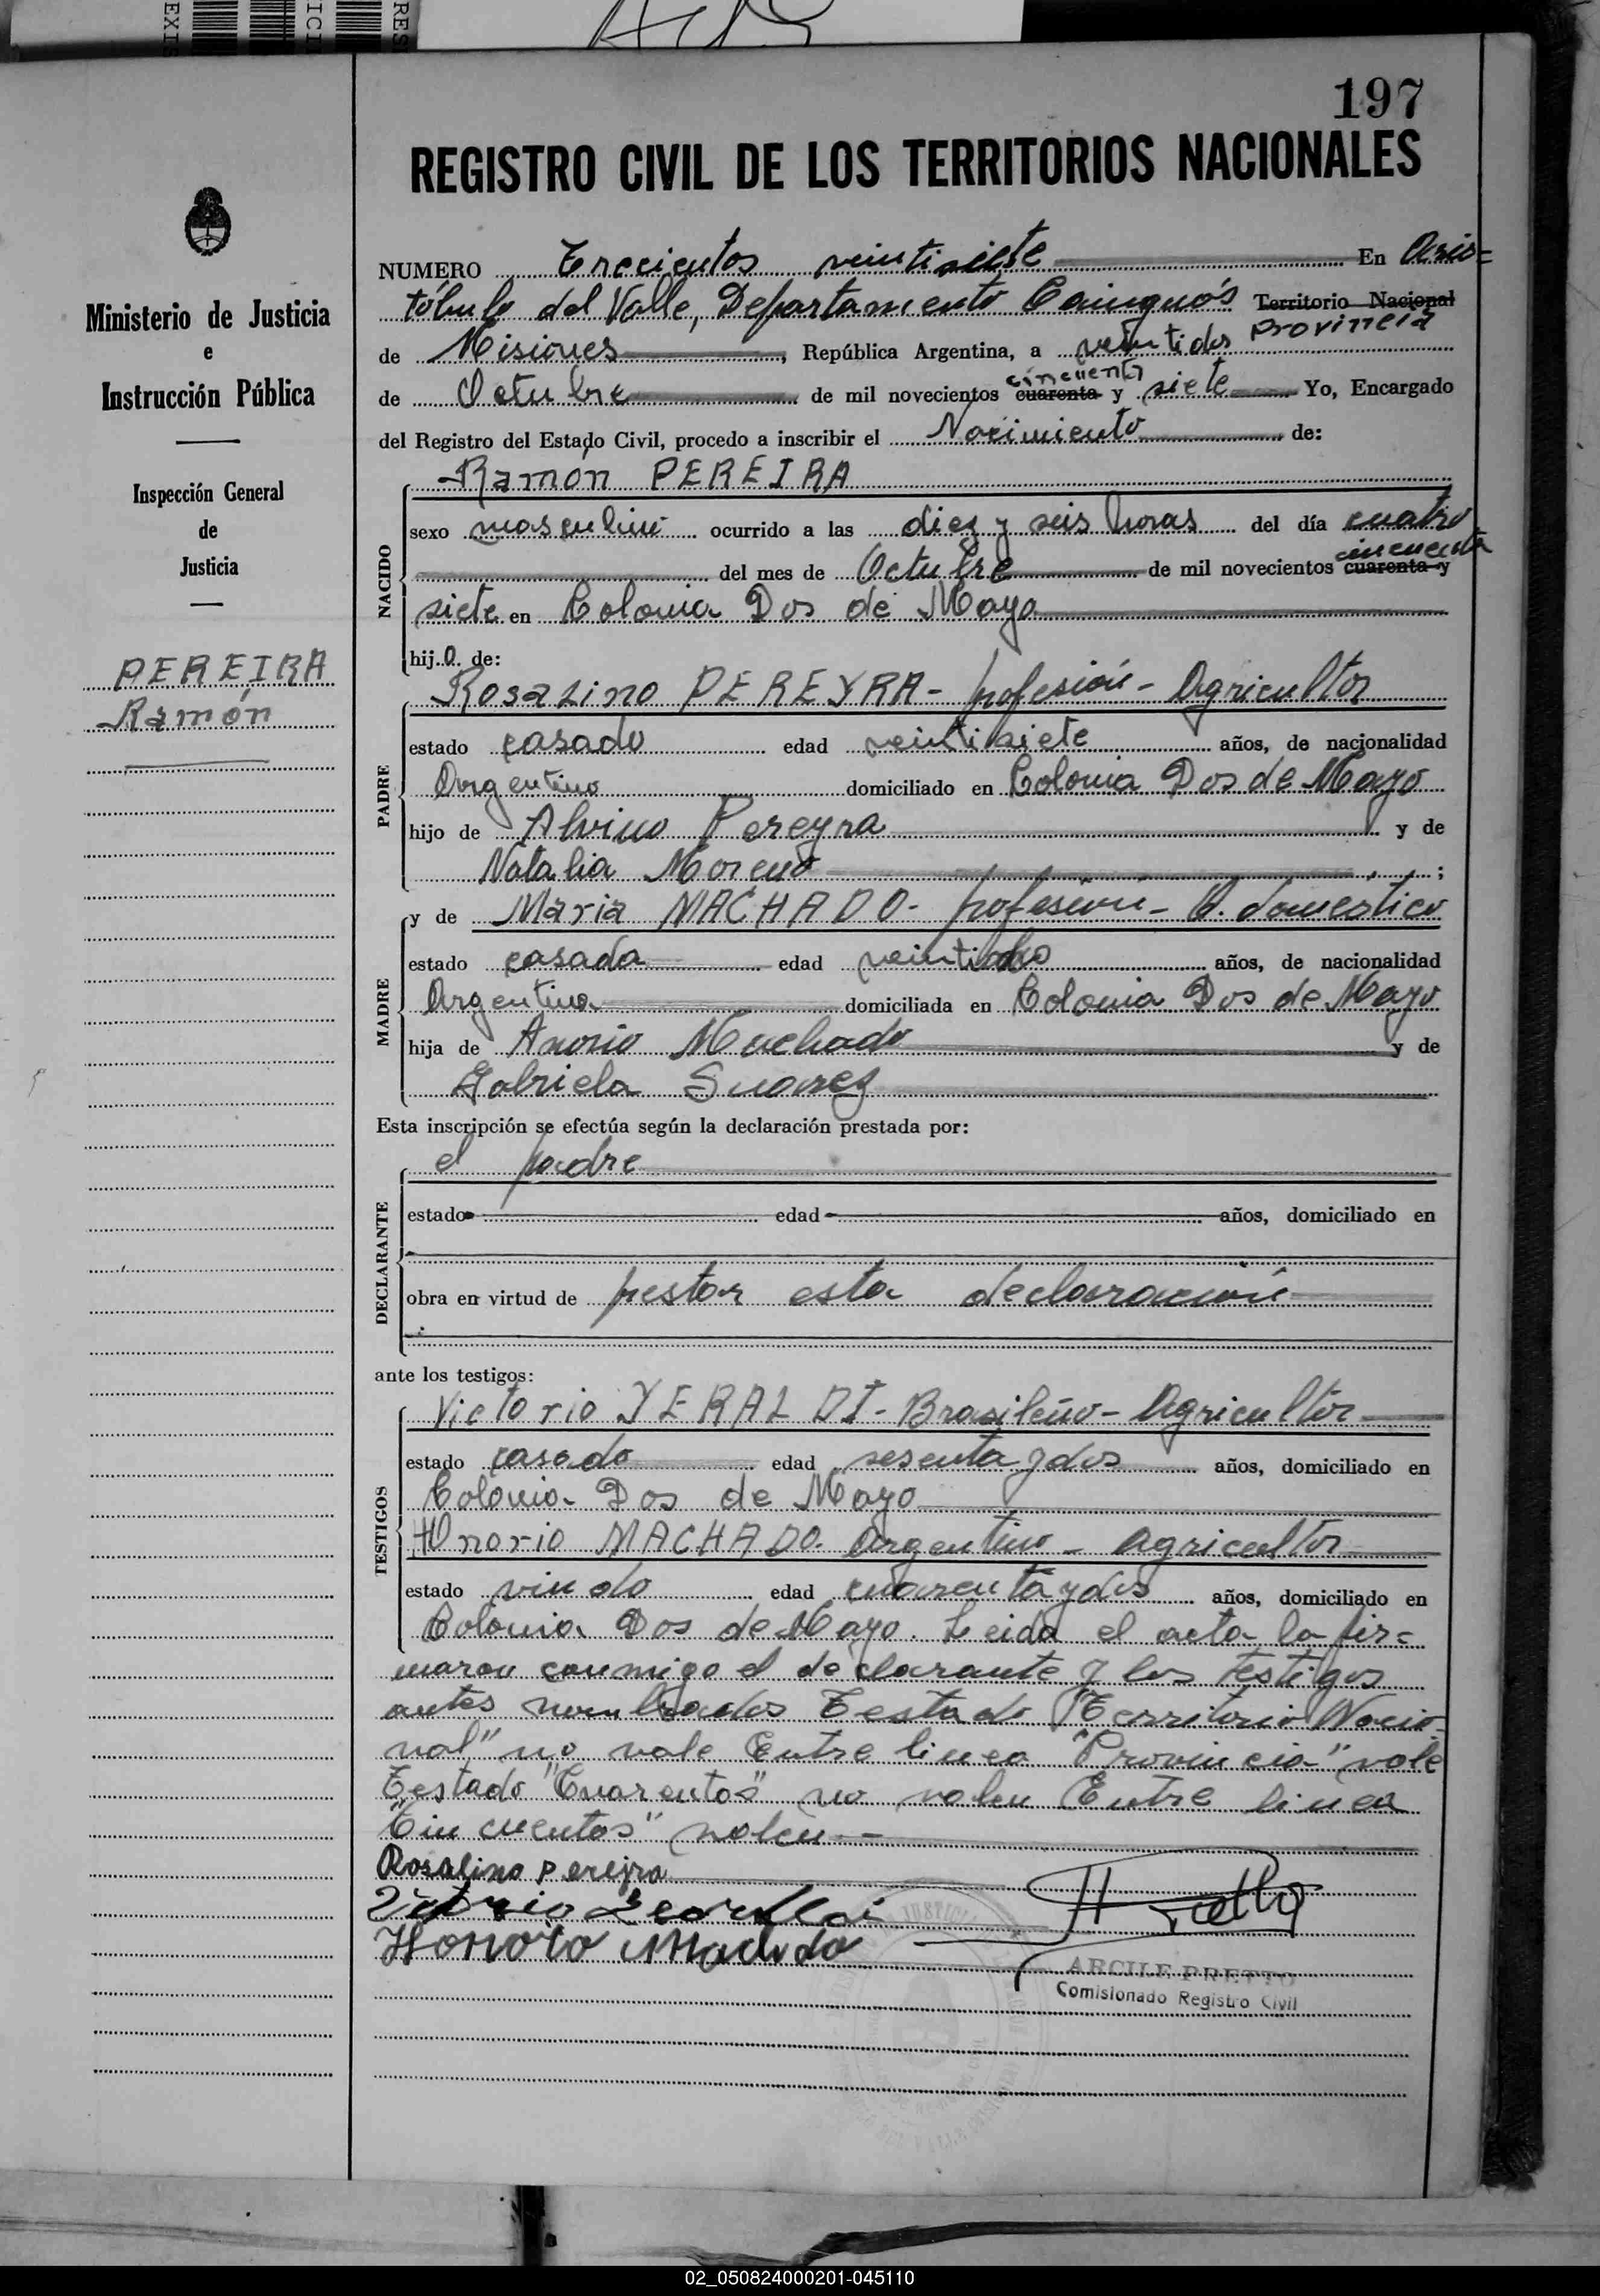 197
REGISTRO CIVIL DE LOS TERRITORIOS NACIONALES
Ministerio de Justicia
e
Instrucción Pública
Inspección General
de
Justicia
PEREIRA
Ramón
NUMERO Trecientos veintisiete En Aris=
tóbulo del Valle, Departamento Cainguás Territorio Nacional
Provincia
de Misiones, República Argentina, a veintidos
cincuenta
de Octubre de mil novecientos cuarenta y siete Yo, Encargado
del Registro del Estado Civil, procedo a inscribir el Nacimiento de:
NACIDO
Ramón PEREIRA
sexo masculino ocurrido a las diez y seis horas del día cuatro
cincuenta
del mes de Octubre de mil novecientos cuarenta y
siete en Colonia Dos de Mayo
hijo de:
PADRE
Rosalino PEREYRA - profesión - Agricultor
estado casado edad veintisiete años, de nacionalidad
Argentino domiciliado en Colonia Dos de Mayo
hijo de Alvino Pereyra y de
Natalia Moreno ;
MADRE
y de Maria MACHADO - profesión - Q. domestico
estado casada edad años, de nacionalidad
Argentina domiciliada en Colonia Dos de Mayo
hija de Machado y de
Gabriela Suarez
Esta inscripción se efectúa según la declaración prestada por:
DECLARANTE
el padre
estado edad años, domiciliado en
obra en virtud de prestar esta declaración
ante los testigos:
TESTIGOS
Victorio YERALDI - Brasileño - Agricultor
estado casado edad sesenta y dos años, domiciliado en
Colonia Dos de Mayo
Honorio MACHADO. Argentino - Agricultor
estado viudo edad cuarenta y dos años, domiciliado en
Colonia Dos de Mayo. Leida el acta la fir=
maron conmigo el declarante y los testigos
antes nombrados Testado "Territorio Nacio=
nal" no vale Entre linea "Provincia" vale
Testado "Cuarentas" no valen Entre linea
"Cincuentas" valen.-
Rosalino pereyra
Honorio Machado
ARCILE PRETTO
Comisionado Registro Civil
02_050824000201-045110